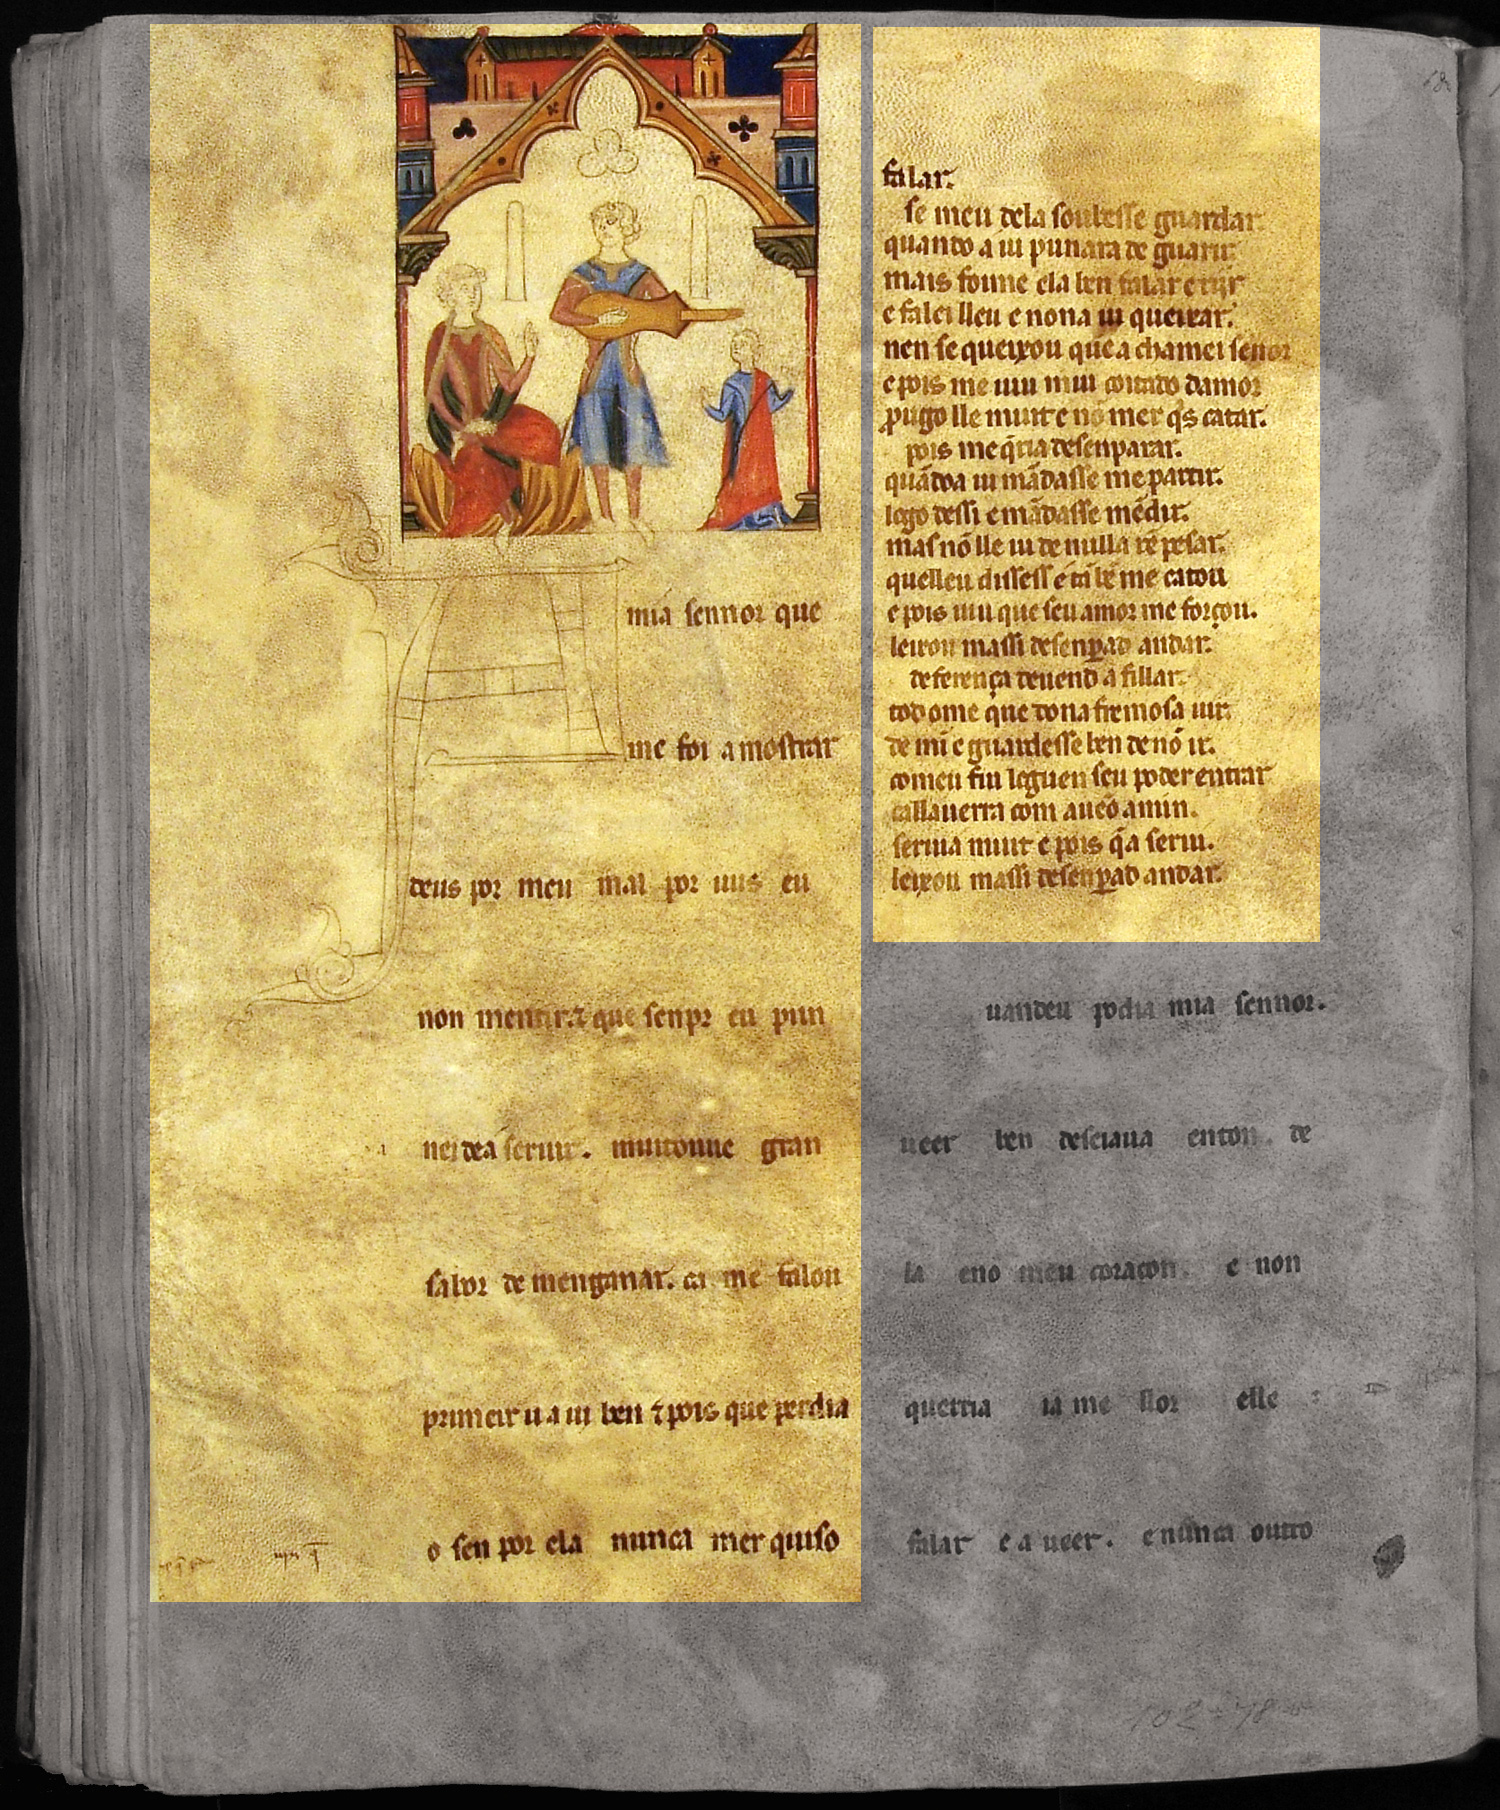 mia sennor que
me foi amostrar
deus por meu mal por uus eu
non mentira que senpr eu pun
nei dea seruir. muitoune gran
sabor de menganar. ca me falou
primeir u a ui ben ⁊ pois que perdia
o sen por ela nunca mer quiso
falar.
se meu dela soubesse guardar.
quando a ui punara de guarir.
mais foime ela ben falar e rijr
e falei lleu e nona ui queixar.
nen se queixou que a chamei senor
e pois me uiu mui coitado damor
prougo lle muit e nō mer q̄s catar.
pois me q̄ria desenparar.
quādoa ui mādasse me partir.
logo dessi e mādasse mēdir.
mas nō lle ui de nulla rē pesar.
quelleu dissess e tā bē me catou
e pois uiu que seu amor me forçou.
leixou massi desenꝑad andar.
deferença deuend a fillar.
tod ome que dona fremosa uir.
de mī e guardesse ben de nō ir.
comeu fui loguen seu poder entrar
callauerra com aueo amin.
seruia muit e pois q̄a serui.
leixou massi desenꝑad andar.
uandeu podia mia sennor.
ueer ben deseiaua enton. de
la eno meu coraçon. e non
querria ia me llor elle
falar e a ueer. e nunca outro
102 = 78